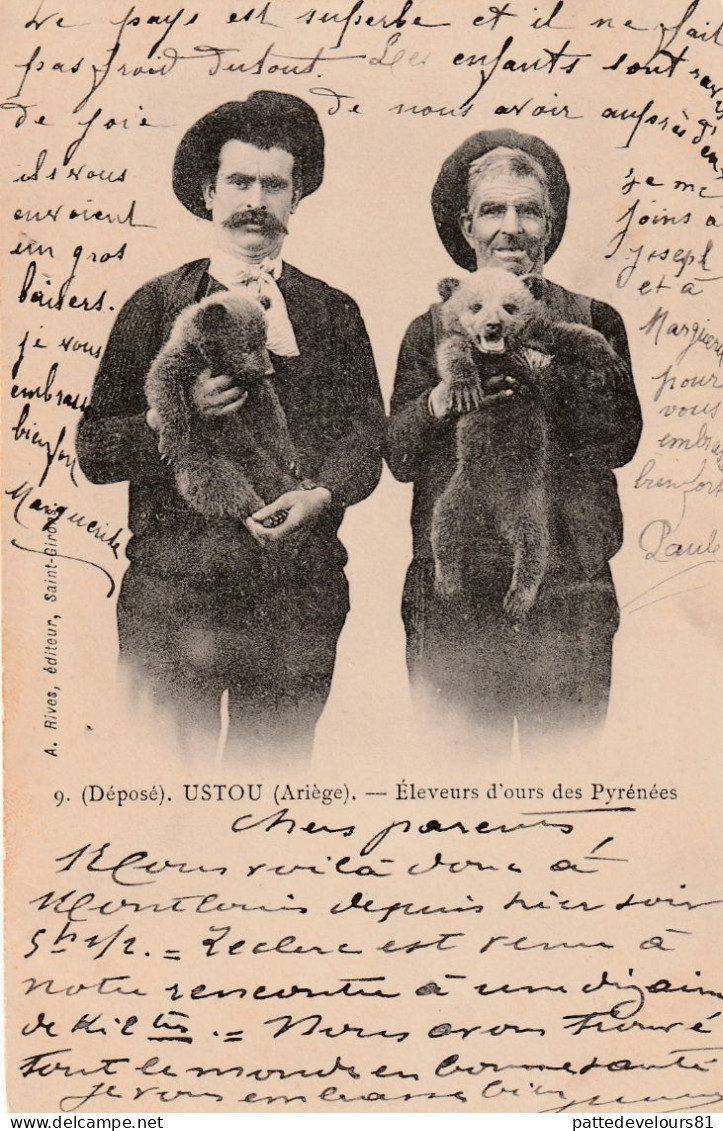 Le pays est superbe et il ne fait
pas froid dutout. Les enfants sont
de joie de nous avoir auprès d'
ils vous
envoient
un gros
baisers.
je vous
embrasse
bien fort
Marguerite
je me
joins a
joseph
et à
Marguerite
pour
vous
embrasser
bien fort
Paule
A. Rives, éditeur, Saint-Giro
9. (Déposé). USTOU (Ariège). — Éleveurs d'ours des Pyrénées
Chers parents
Nous voilà donc à
Montlouis depuis hier soir
5h 1/2. = Leclerc est venu à
notre rencontre à une dizaine
de Kil tres. = Nous avons trouvé
tout le monde en bonne santé
je vous embrasse bien
pattedevelours81